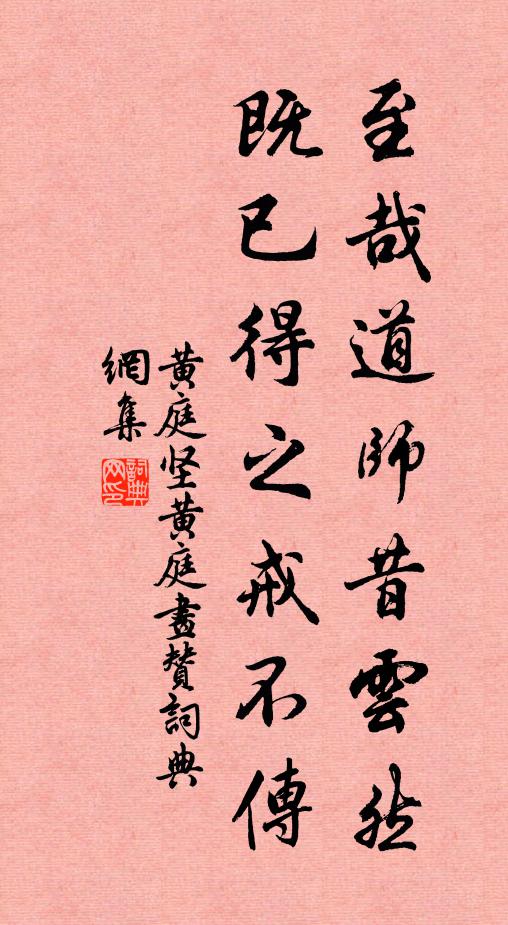 至哉道師昔雲然
既已得之戒不傳
黃庭坚黃庭畫贊詞典
網集
詞典網印